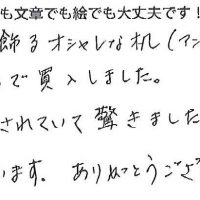 も文章でも絵でも大丈夫です！
飾るオシャレな机（アン
で買入しました。
されていて驚きました
います。ありがとうござ